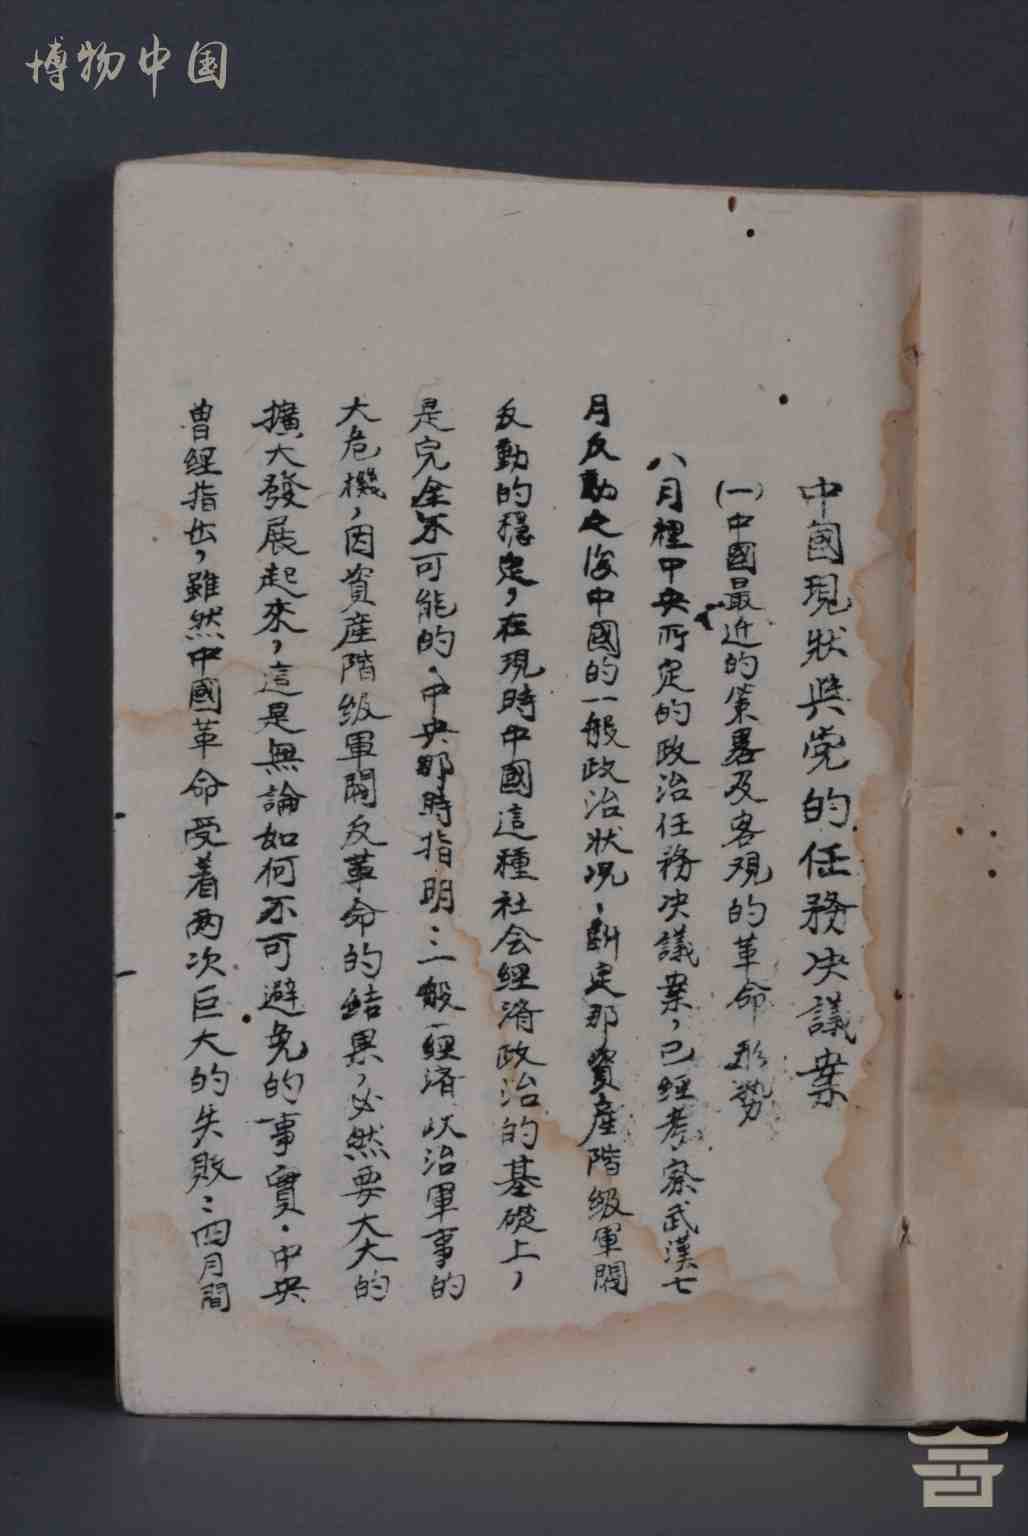 博物中国
中國現狀與党的任務决議案
(一)中國最近的策畧及客观的革命形勢
八月裡中央所定的政治任務决議案，已經考察武漢七
月反動之後中國的一般政治狀况，斷定那資產階級軍閥
反動的穩定，在現時中國這種社会經濟政治的基礎上，
是完全不可能的。中央那時指明：一般經濟政治軍事的
大危機，因資産階級軍閥反革命的結果，必然要大大的
擴大發展起來，這是無論如何不可避免的事實。中央
曾經指出，雖然中國革命受着两次巨大的失敗：四月間